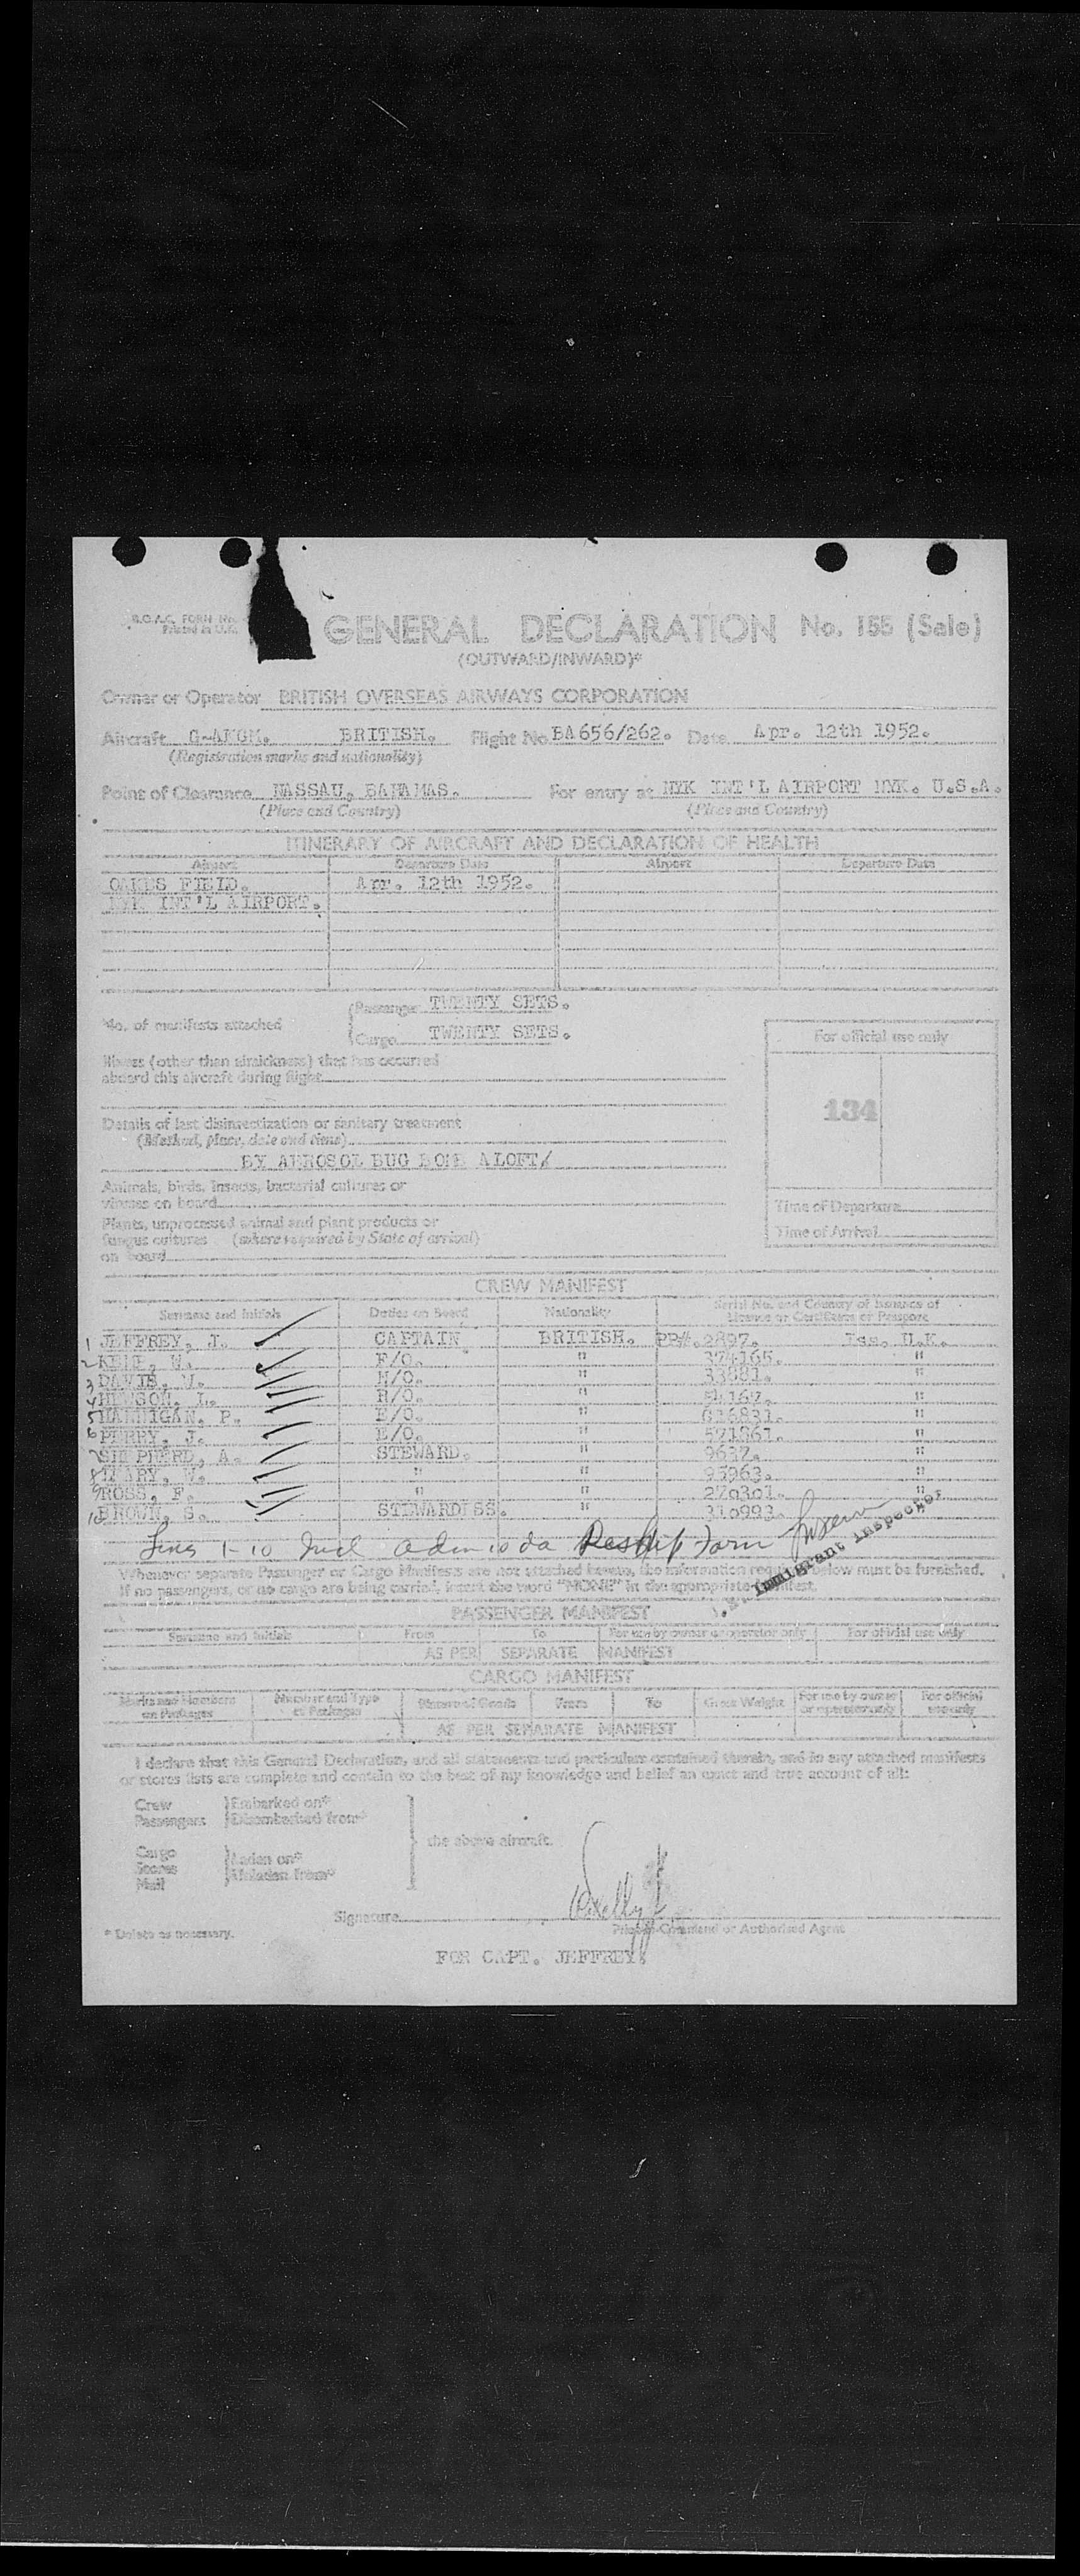 B.O.A.C. FORM No.
Printed in U.K.
GENERAL DECLARATION No. 155 (Sale)
(OUTWARD/INWARD)*
Owner or Operator BRITISH OVERSEAS AIRWAYS CORPORATION
Aircraft BRITISH. Flight No. BA656/262. Date Apr. 12th 1952.
(Registration marks and nationality)
Point of Clearance NASSAU, BAHAMAS. For entry at NYK INT'L AIRPORT NYK. U.S.A.
(Place and Country) (Place and Country)
ITINERARY OF AIRCRAFT AND DECLARATION OF HEALTH
Airport Departure Date Airport Departure Date
OAKES FIELD. Apr. 12th 1952.
NYK INT'L AIRPORT.
Passenger TWENTY SETS.
No. of manifests attached
Cargo TWENTY SETS.
For official use only
Illness (other than airsickness) that has occurred
aboard this aircraft during flight
134
Details of last disinsectization or sanitary treatment
(Method, place, date and time)
BY AEROSOL BUG BOMB ALOFT/
Animals, birds, insects, bacterial cultures or
viruses on board
Time of Departure
Plants, unprocessed animal and plant products or
fungus cultures (where required by State of arrival)
Time of Arrival
on board
CREW MANIFEST
Surname and Initials Duties on Board Nationality Serial No. and Country of Issuance of
Licence or Certificate or Passport
1 JEFFREY, J. CAPTAIN BRITISH. PP#.2897. Iss. U.K.
2 W. F/O. " 374165. "
3 DAVIS, N/O. " 33881. "
4 R/O. " "
5 HANNIGAN, P. E/O. " "
6 PERRY, J. E/O. " "
7 SHEPHERD, A. STEWARD. " 9637. "
8 W. " " 95963. "
9 ROSS, F. " " "
10 BROWN, S. STEWARDESS. " 310993.
Lines 1-10 Incl
Immigrant Inspector
Whenever separate Passenger or Cargo Manifests are not attached hereto, the information required below must be furnished.
If no passengers, or no cargo are being carried, insert the word "NONE" in the appropriate manifest.
PASSENGER MANIFEST
Surname and Initials From To For use by owner or operator only For official use only
AS PER SEPARATE MANIFEST
CARGO MANIFEST
Marks and Numbers on Packages Number and Type of Packages Nature of Goods From To Gross Weight For use by owner or operator only For official use only
AS PER SEPARATE MANIFEST
I declare that this General Declaration, and all statements and particulars contained therein, and in any attached manifests
or stores lists are complete and contain to the best of my knowledge and belief an exact and true account of all:
Crew Embarked on*
Passengers Disembarked from*
the above aircraft.
Cargo Laden on*
Stores Unladen from*
Mail
Signature
Pilot-in-Command or Authorised Agent
* Delete as necessary.
FOR CAPT. JEFFREY.